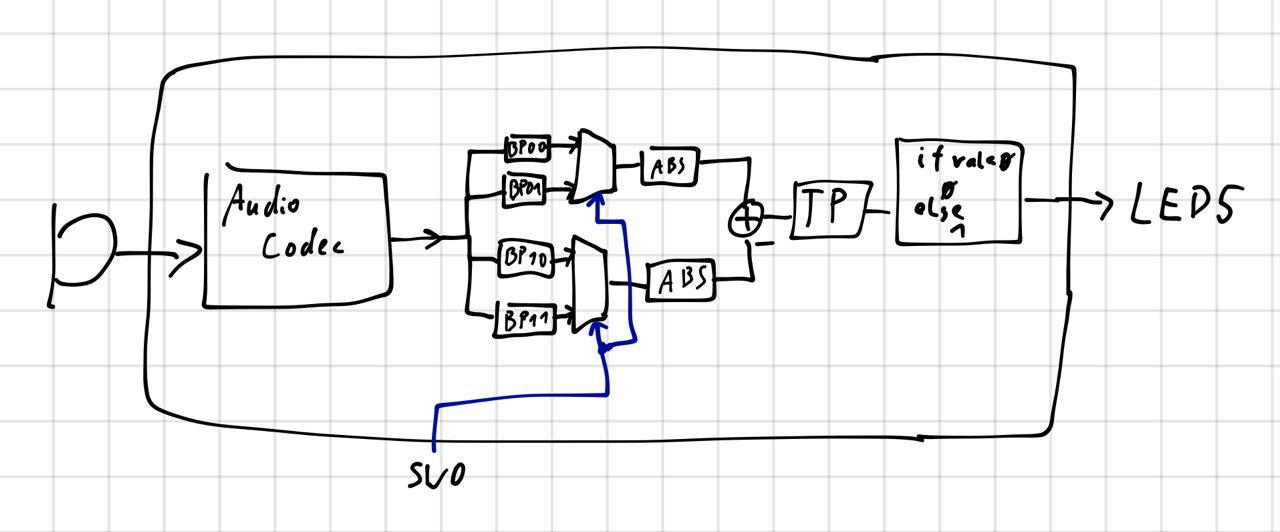 Audio
Codec
BP00
BP01
BP10
BP11
ABS
ABS
+
−
TP
if val<0
0
else
1
LEDS
SW0